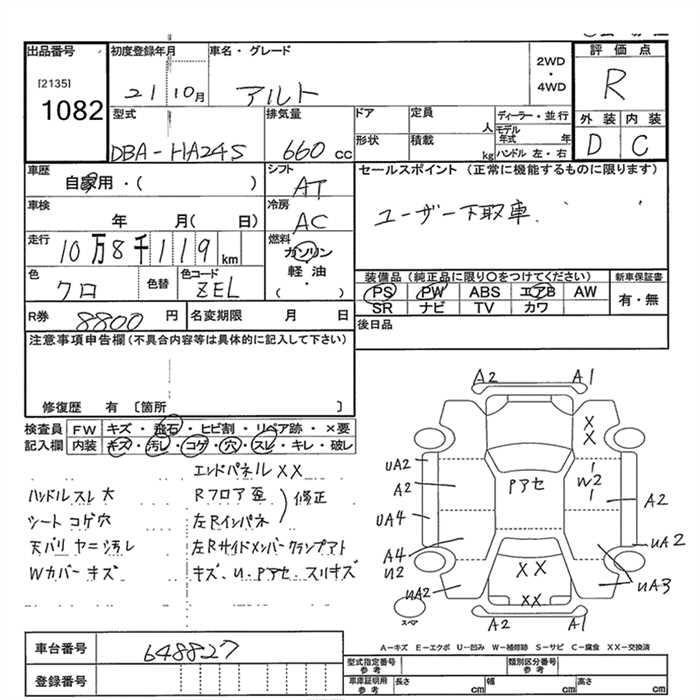 出品番号
[2135]
1082
初度登録年月
21 10月
車名・グレード
アルト
2WD
・
4WD
評価点
R
型式
DBA-HA24S
排気量
660 cc
ドア
形状
定員
人
積載
kg
ディーラー・並行
モデル年式 年
ハンドル 左・右
外装 内装
D C
車歴
自家用・( )
シフト
AT
冷房
AC
車検
年 月( 日)
走行
10万8千119 km
燃料
ガソリン
軽油
( )
色
クロ
色替
色コード
ZEL
R券 8800 円
名変期限 月 日
セールスポイント (正常に機能するものに限ります)
ユーザー下取車.
装備品(純正品に限り○をつけてください)
PS PW ABS エアB AW
SR ナビ TV カワ
新車保証書
有・無
後日品
注意事項申告欄(不具合内容等は具体的に記入して下さい)
修復歴 有 〔箇所 〕
検査員記入欄
FW キズ・飛石・ヒビ割・リペア跡・×要
内装 キズ・汚レ・コゲ・穴・スレ・キレ・破レ
エンドパネル XX
ハンドル スレ 大
Rフロア 歪
シート コゲ 穴
左Rインパネ
修正
天バリ ヤニ 汚レ
左Rサイドメンバー クランプアト
Wカバー キズ
キズ、U、Pアセ、スリキズ
A2 A1
X X
UA2
A2
Pアセ
W2
A2
UA4
UA2
A4
U2
XX
UA2
UA3
XX
A2 A1
スペア
A-キズ E-エクボ U-凹み W-補修跡 S-サビ C-腐食 XX-交換済
車台番号 648827
登録番号
型式指定番号 参考
類別区分番号 参考
車庫証明用 参考
長さ cm 幅 cm 高さ cm